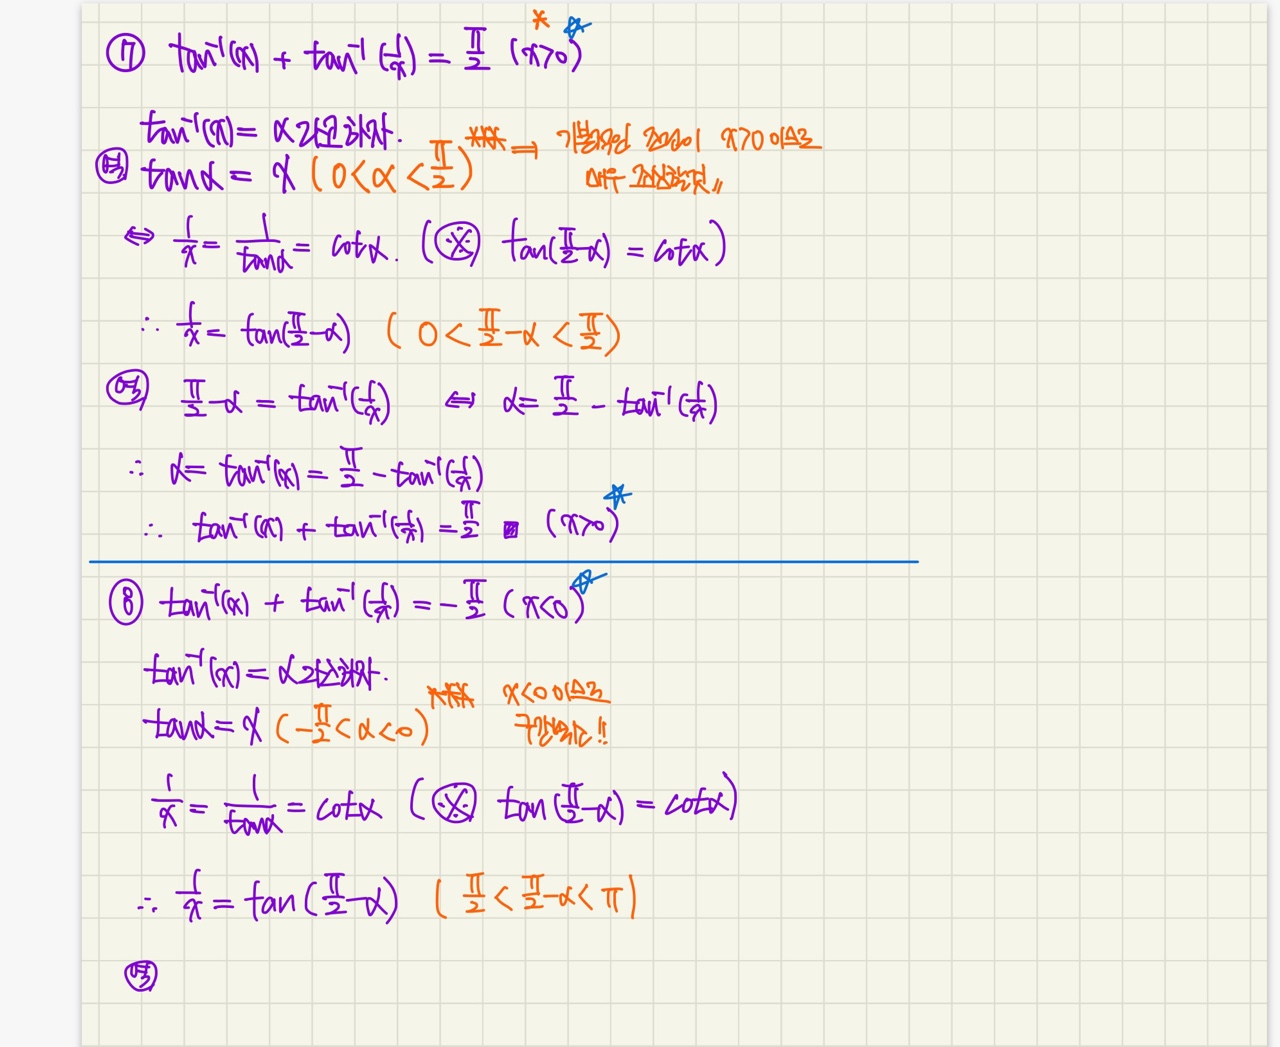 ⑦ tan⁻¹(x) + tan⁻¹(1/x) = π/2 (x>0)
tan⁻¹(x) = α라고 하자.
tanα = x (0<α<π/2) ⇒ 기본적인 전제가 x>0 이므로
⇔ 1/x = 1/tanα = cotα. (※ tan(π/2-α) = cotα)
∴ 1/x = tan(π/2-α) (0<π/2-α<π/2)
π/2-α = tan⁻¹(1/x) ⇔ α = π/2 - tan⁻¹(1/x)
∴ α = tan⁻¹(x) = π/2 - tan⁻¹(1/x)
∴ tan⁻¹(x) + tan⁻¹(1/x) = π/2 ■ (x>0)
⑧ tan⁻¹(x) + tan⁻¹(1/x) = -π/2 (x<0)
tan⁻¹(x) = α라고 하자.
x<0 이므로
tanα = x (-π/2<α<0)
1/x = 1/tanα = cotα (※ tan(π/2-α) = cotα)
∴ 1/x = tan(π/2-α) (π/2<π/2-α<π)